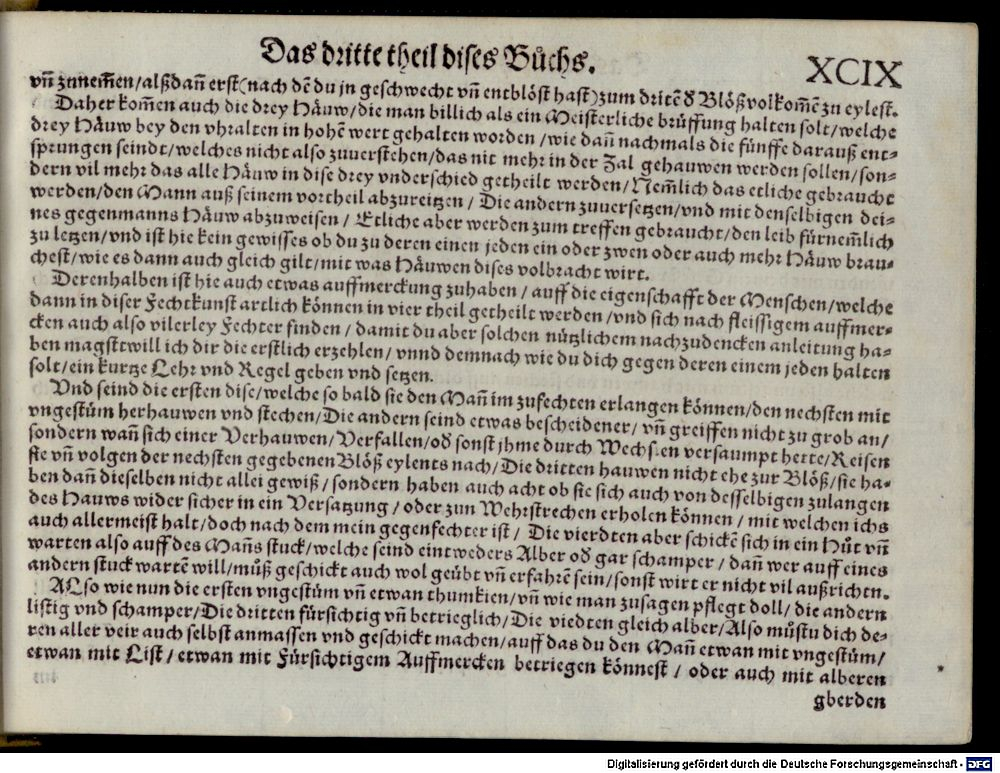 Das dritte theil dises Bůchs.
XCIX
vñ znnem̃en/alßdañ erst(nach dẽ du jn geschwecht vñ entblöst hast)zum dritẽ ð Blöß volkom̃e zu eylest.
Daher kom̃en auch die drey Häuw/die man billich als ein Meisterliche brüffung halten solt/welche
drey Häuw bey den vhralten in hohẽ wert gehalten worden/wie dañ nachmals die fünffe darauß ent-
sprungen seindt/welches nicht also zuuerstehen/das nit mehr in der Zal gehauwen werden sollen/son-
dern vil mehr das alle Häuw in dise drey vnderschied getheilt werden/Nem̃lich das etliche gebraucht
werden/den Mann auß seinem vortheil abzureitzen/Die andern zuuersetzen/vnd mit denselbigen dei-
nes gegenmanns Häuw abzuweisen/Etliche aber werden zum treffen gebraucht/den leib fürnem̃lich
zu letzen/vnd ist hie kein gewisses ob du zu deren einen jeden ein oder zwen oder auch mehr Häuw brau-
chest/wie es dann auch gleich gilt/mit was Häuwen dises volbracht wirt.
Derenhalben ist hie auch etwas auffmerckung zuhaben/auff die eigenschafft der Menschen/welche
dann in diser Fechtkunst artlich können in vier theil getheilt werden/vnd sich nach fleissigem auffmer-
cken auch also vilerley Fechter finden/damit du aber solchen nützlichem nachzudencken anleitung ha-
ben magst will ich dir die erstlich erzehlen/vnnd demnach wie du dich gegen deren einem jeden halten
solt/ein kurtze Lehr vnd Regel geben vnd setzen.
Vnd seind die ersten dise/welche so bald sie den Mañ im zufechten erlangen können/den nechsten mit
vngestům herhauwen vnd stechen/Die andern seind etwas bescheidener/vñ greiffen nicht zu grob an/
sondern wañ sich einer Verhauwen/Verfallen/oð sonst jhme durch Wechslen versaumpt hette/Reisen
sie vñ volgen der nechsten gegebenen Blöß eylents nach/Die dritten hauwen nicht ehe zur Blöß/sie ha-
ben dañ dieselben nicht allei gewiß/sondern haben auch acht ob sie sich auch von desselbigen zulangen
des Hauws wider sicher in ein Versatzung/oder zun Wehrstrechen erholen können/mit welchen ichs
auch allermeist halt/doch nach dem mein gegenfechter ist/Die vierdten aber schickẽ sich in ein Hůt vñ
warten also auff des Mañs stuck/welche seind eintweders Alber oð gar schamper/dañ wer auff eines
andern stuck wartẽ will/můß geschickt auch wol geübt vñ erfahrẽ sein/sonst wirt er nicht vil außrichtn.
ALso wie nun die ersten vngestüm vñ etwan thumkien/vñ wie man zusagen pflegt doll/die andern
listig vnd schamper/Die dritten fürsichtig vñ betrieglich/Die viedten gleich alber/Also můstu dich de-
ren aller veir auch selbst anmassen vnd geschickt machen/auff das du den Mañ etwan mit vngestüm/
etwan mit List/etwan mit Fürsichtigem Auffmercken betriegen könnest/oder auch mit alberen
gberden
Digitalisierung gefördert durch die Deutsche Forschungsgemeinschaft - DFG